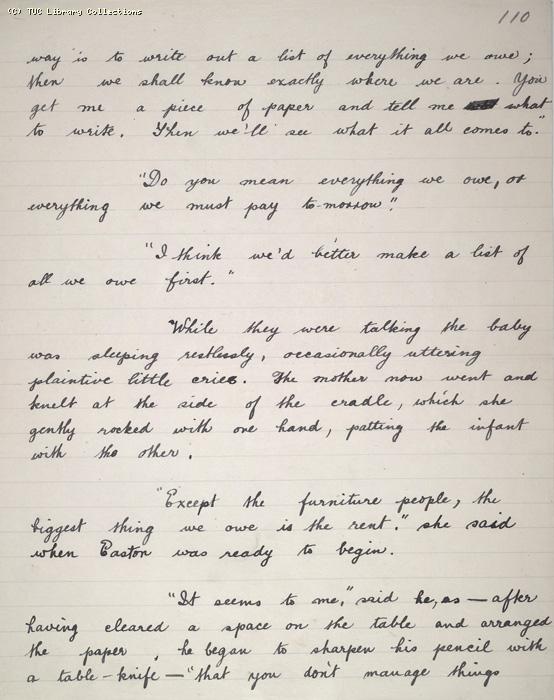 (C) TUC Library Collections
110
way is to write out a list of everything we owe;
then we shall know exactly where we are. You
get me a piece of paper and tell me what
to write. Then we'll see what it all comes to."
"Do you mean everything we owe, or
everything we must pay to-morrow".
"I think we'd better make a list of
all we owe first."
While they were talking the baby
was sleeping restlessly, occasionally uttering
plaintive little cries. The mother now went and
knelt at the side of the cradle, which she
gently rocked with one hand, patting the infant
with the other.
"Except the furniture people, the
biggest thing we owe is the rent." she said
when Easton was ready to begin.
"It seems to me," said he, as — after
having cleared a space on the table and arranged
the paper, he began to sharpen his pencil with
a table-knife — "that you don't manage things